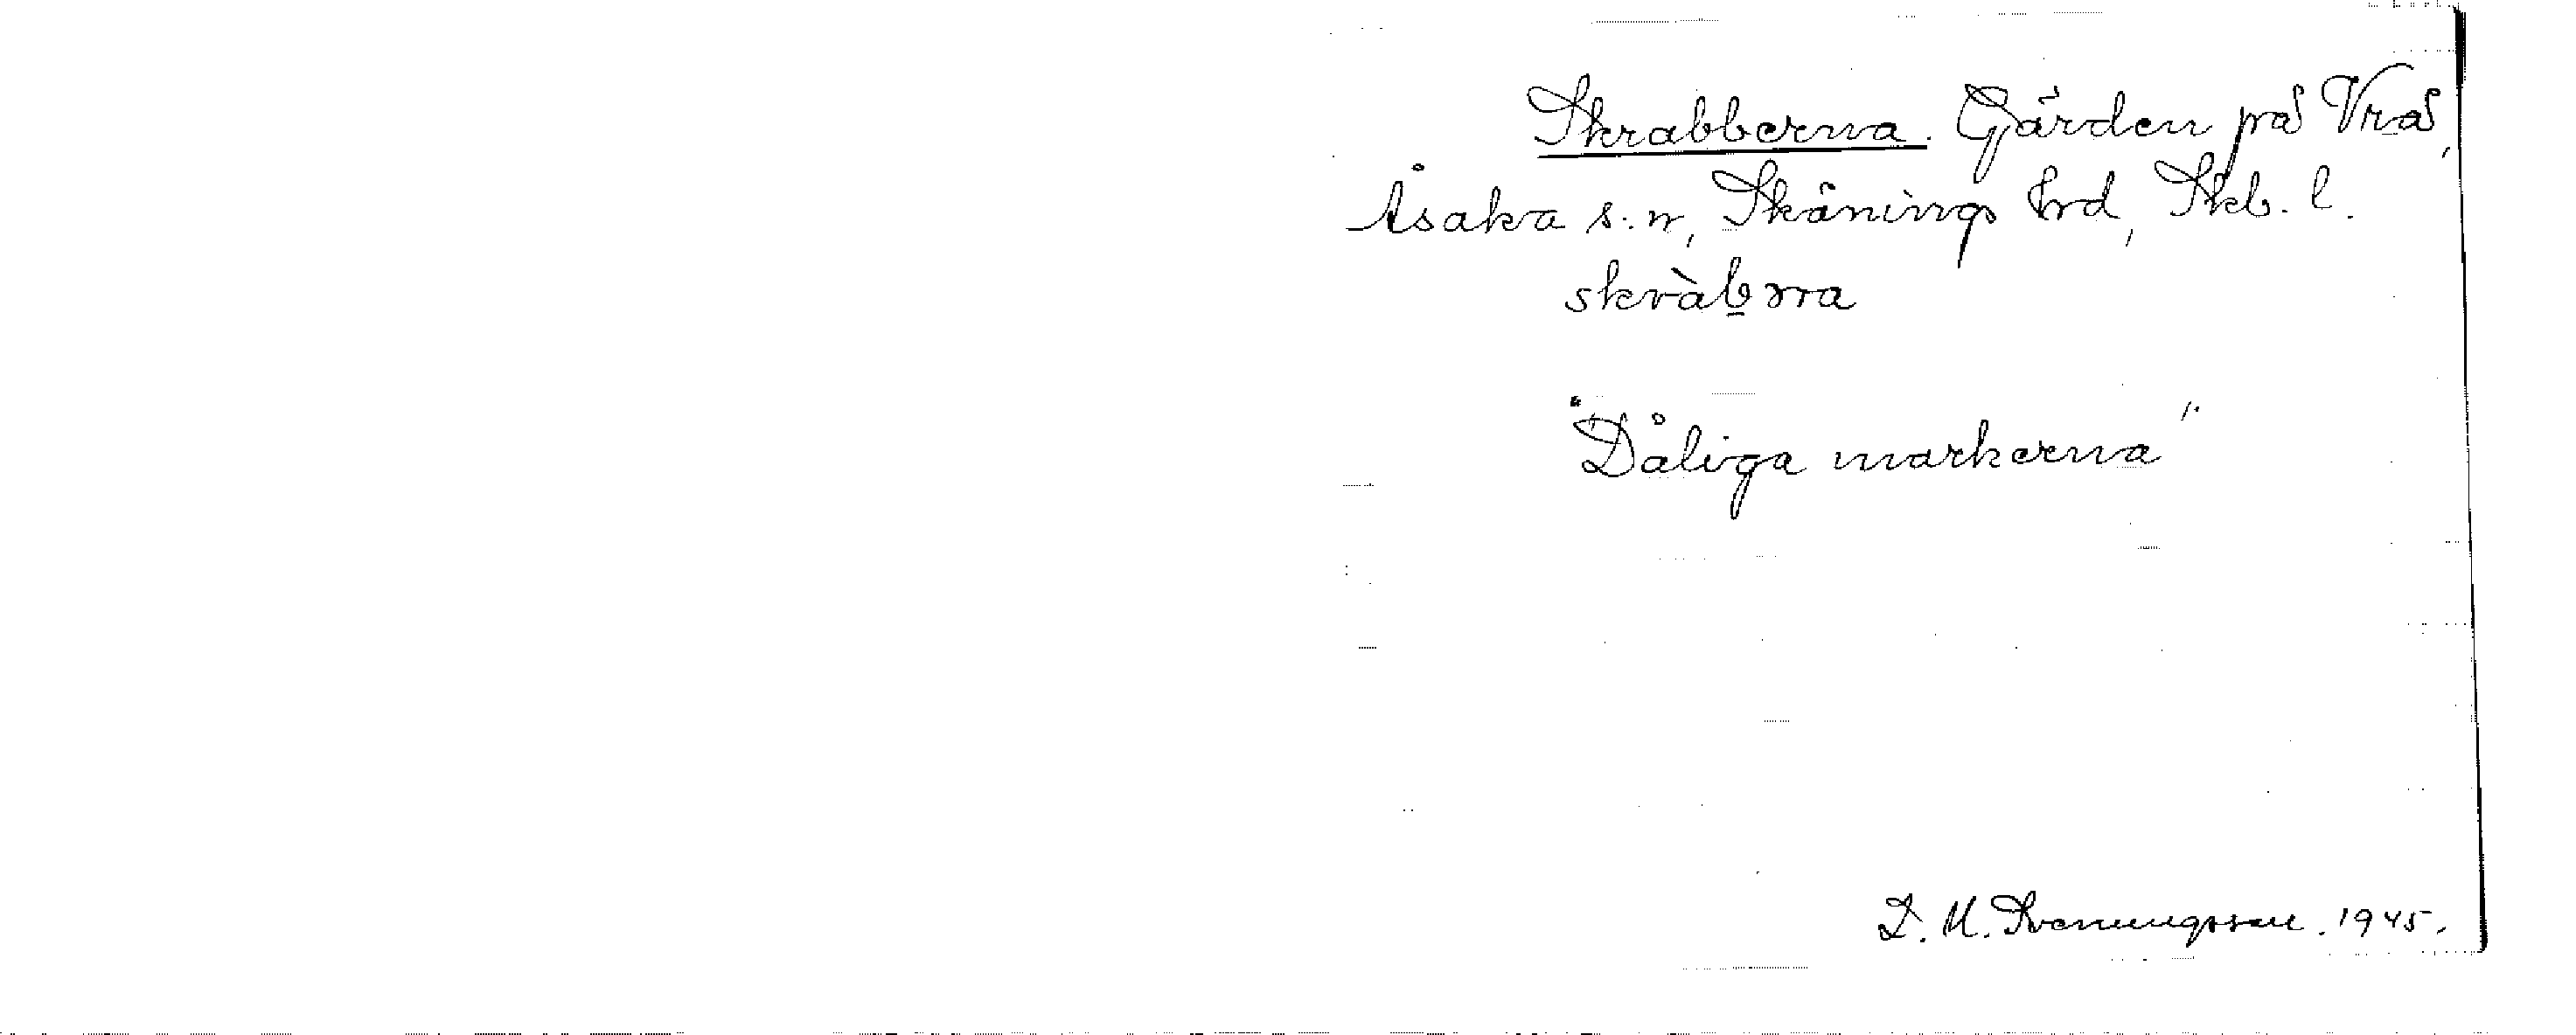 Skrabberna. Gärden på Vrå,
Åsaka s:n, Skånings hrd, Skb. l.
skràb̲ṛna
"Dåliga markerna"
D. M. Svenungsson. 1945.